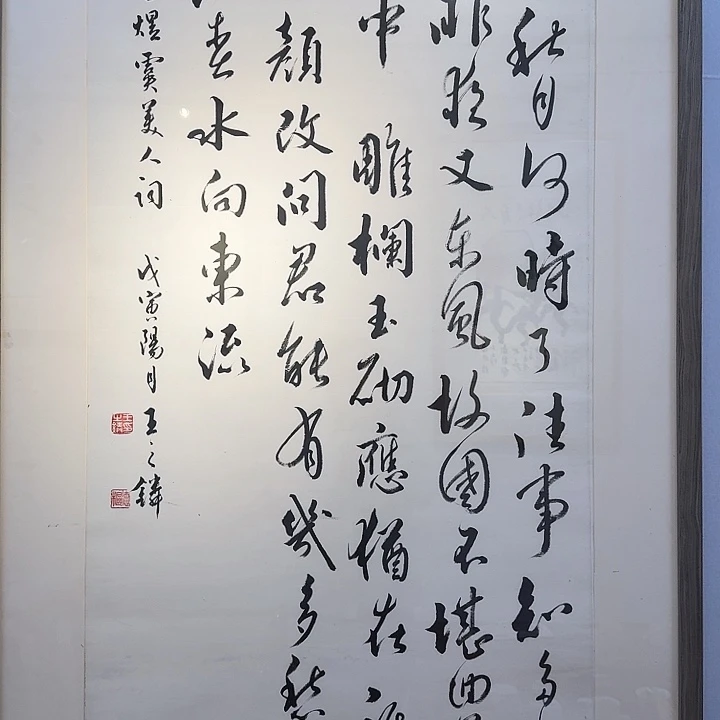 秋月何時了往事知多
昨夜又东風故國不堪回
中雕欄玉砌應猶在
顏改問君能有幾多愁
春水向東流
煜虞美人詞 戊寅陽月王之鏻